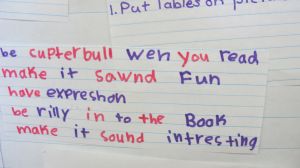 1. Put lables on pic
be cupterbull wen you read
make it sawnd Fun
have expreshon
be rilly in to the Book
make it sound intresting